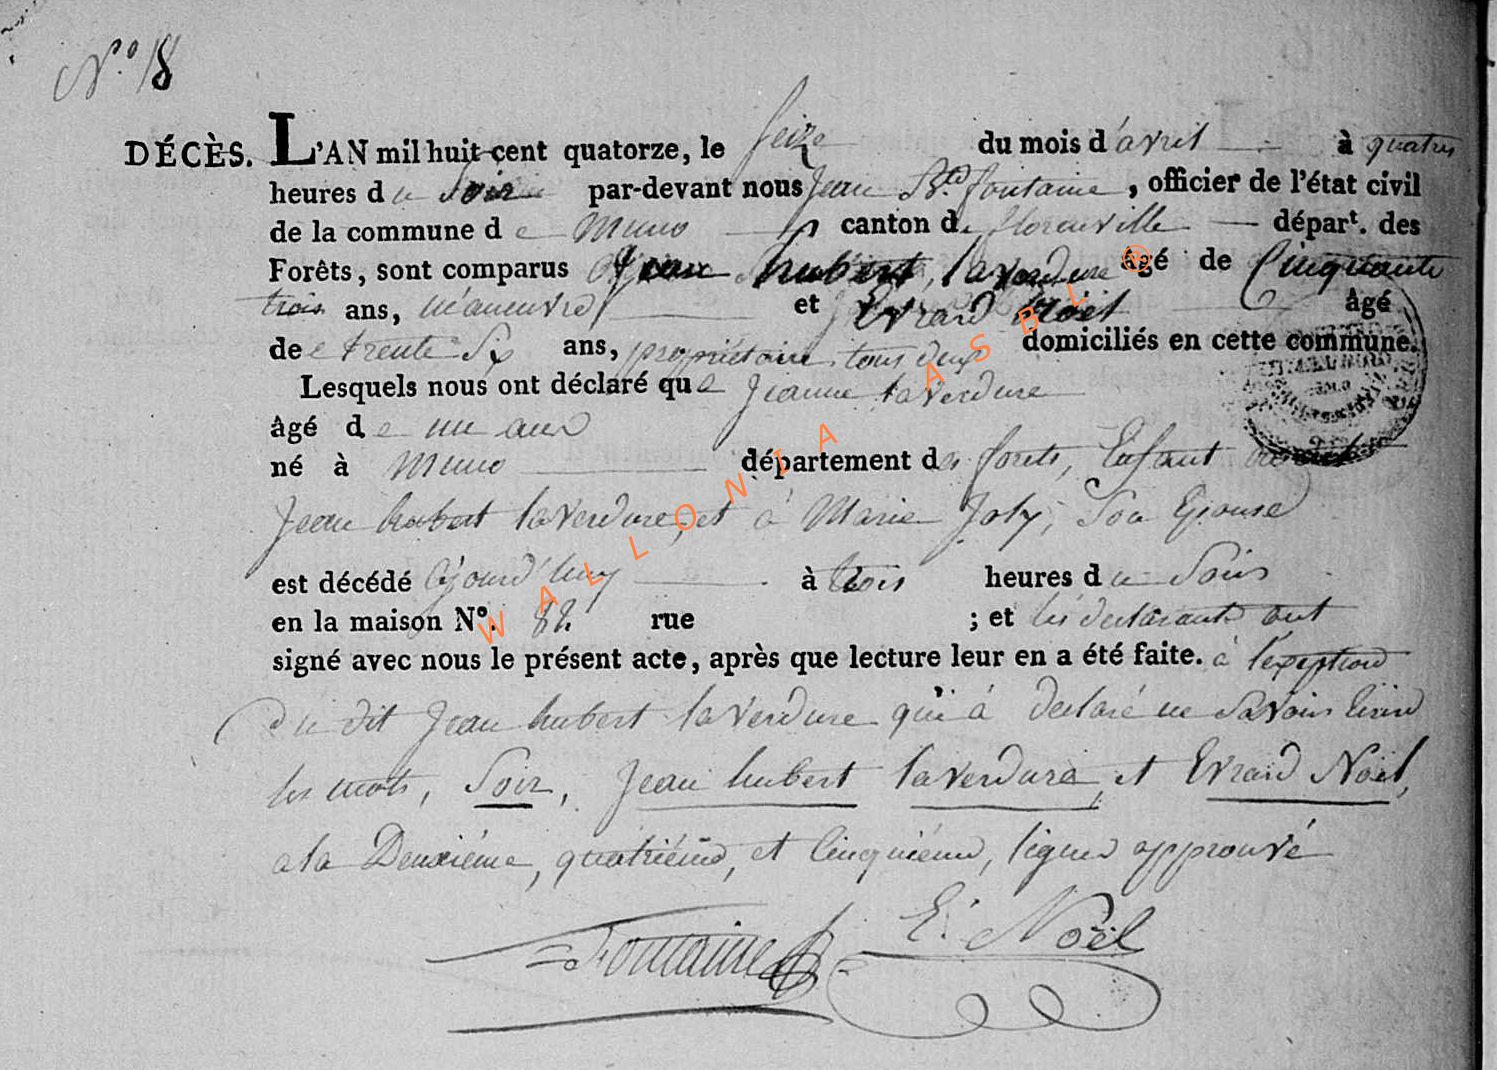 N.º 18
DÉCÈS. L'AN mil huit cent quatorze, le seize du mois d'avril à quatres
heures du Soir par-devant nous Jean Bte fontaine, officier de l'état civil
de la commune de Muno canton de florenville départ. des
Forêts, sont comparus Jean hubert laverdure âgé de Cinquante
trois ans, manœuvre et Evrard Noël âgé
de trente Six ans, propriétaire, tous deux domiciliés en cette commune.
Lesquels nous ont déclaré que Jeanne laverdure
âgé de un ans
né à Muno département des forets, Enfant
Jean hubert laverdure, et à Marie Joly, Son Epouse
est décédé à trois heures du Soir
en la maison Nº. 82 rue ; et les déclarants ont
signé avec nous le présent acte, après que lecture leur en a été faite. à l'exeption
du dit Jean hubert laverdure qui à declaré ne Savoir
les mots, Soir, Jean hubert laverdure, et Evrard Noël,
a la Deuxiéme, quatriéme, et Cinquiéme, lignes approuvé
Fontaine E. Noël
WALLONIA ASBL ®